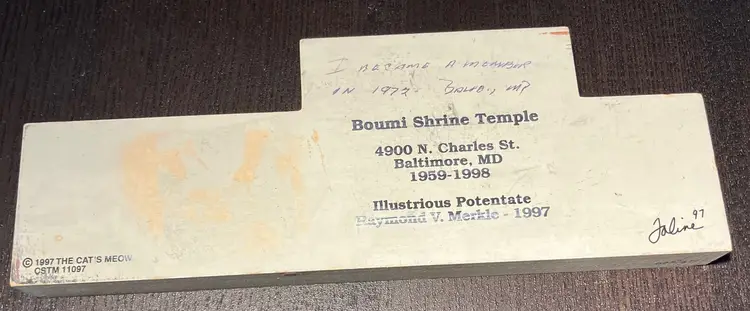 I BECAME A MEMBER
IN 1972. BALTO., MD
Boumi Shrine Temple
4900 N. Charles St.
Baltimore, MD
1959-1998
Illustrious Potentate
Raymond V. Merkle - 1997
Faline 97
© 1997 THE CAT'S MEOW
CSTM 11097